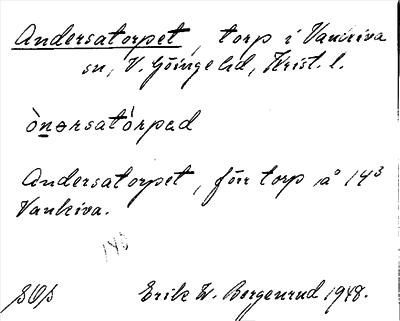 Andersatorpet, torp i Vankiva
sn, V. Göinge hd, Krist. l.
ò̱nərsatò̀rpəd
Andersatorpet, för torp å 14³
Vankiva.
14³
SOS Erik W. Borgenrud 1948.